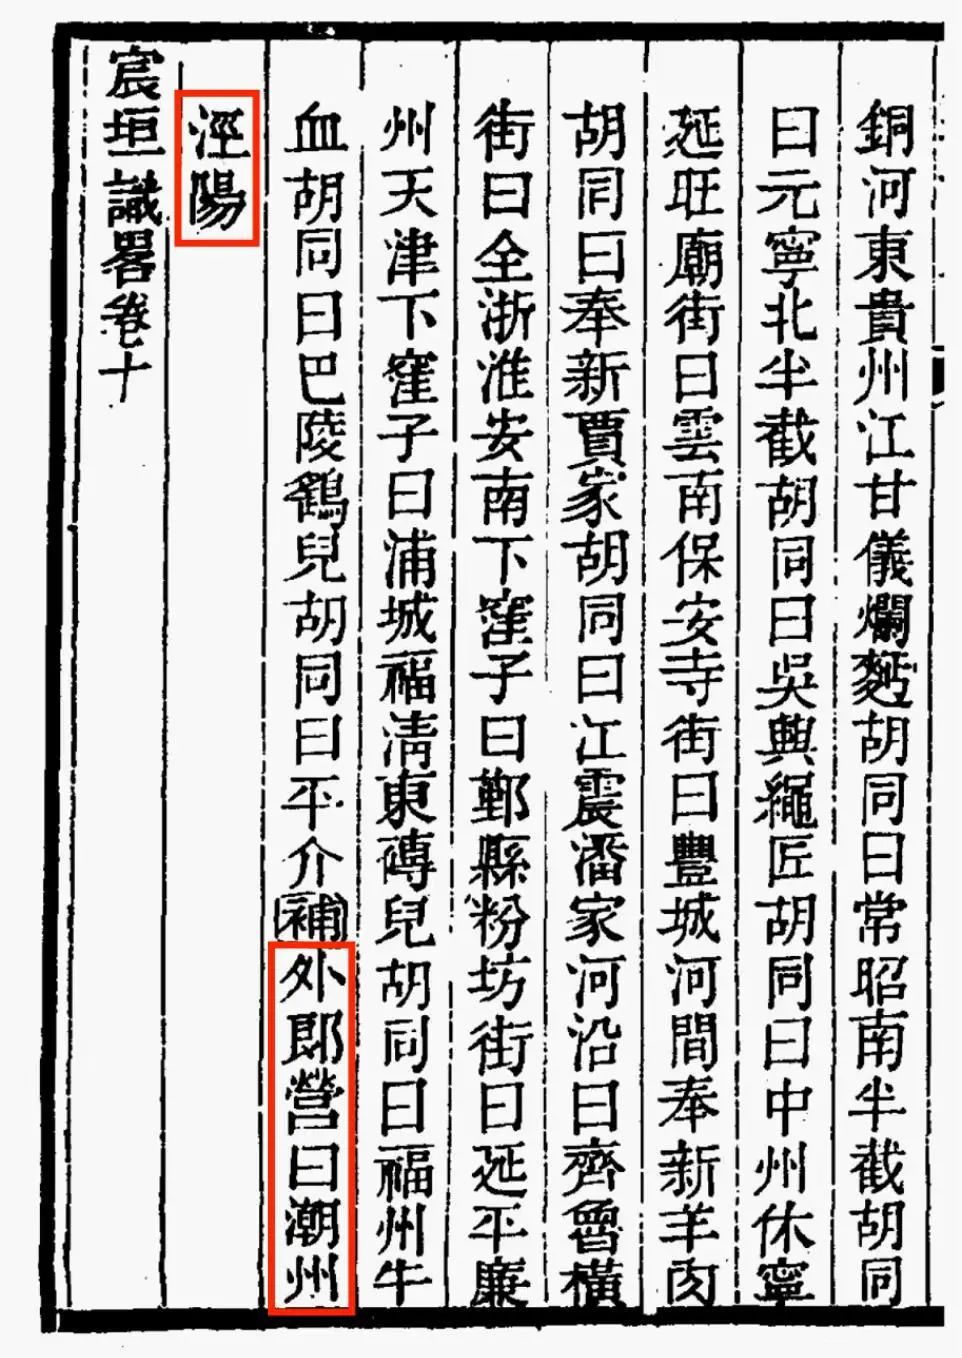 銅河東貴州江甘儀爛麫胡同曰常昭南半截胡同
曰元寧北半截胡同曰吳興繩匠胡同曰中州休寧
延旺廟街曰雲南保安寺街曰豐城河間奉新羊肉
胡同曰奉新賈家胡同曰江震潘家河沿曰齊魯橫
街曰全浙淮安南下窪子曰鄞縣粉坊街曰延平廉
州天津下窪子曰浦城福清東磚兒胡同曰福州牛
血胡同曰巴陵鶴兒胡同曰平介補外郎營曰潮州
涇陽
宸垣識畧卷十